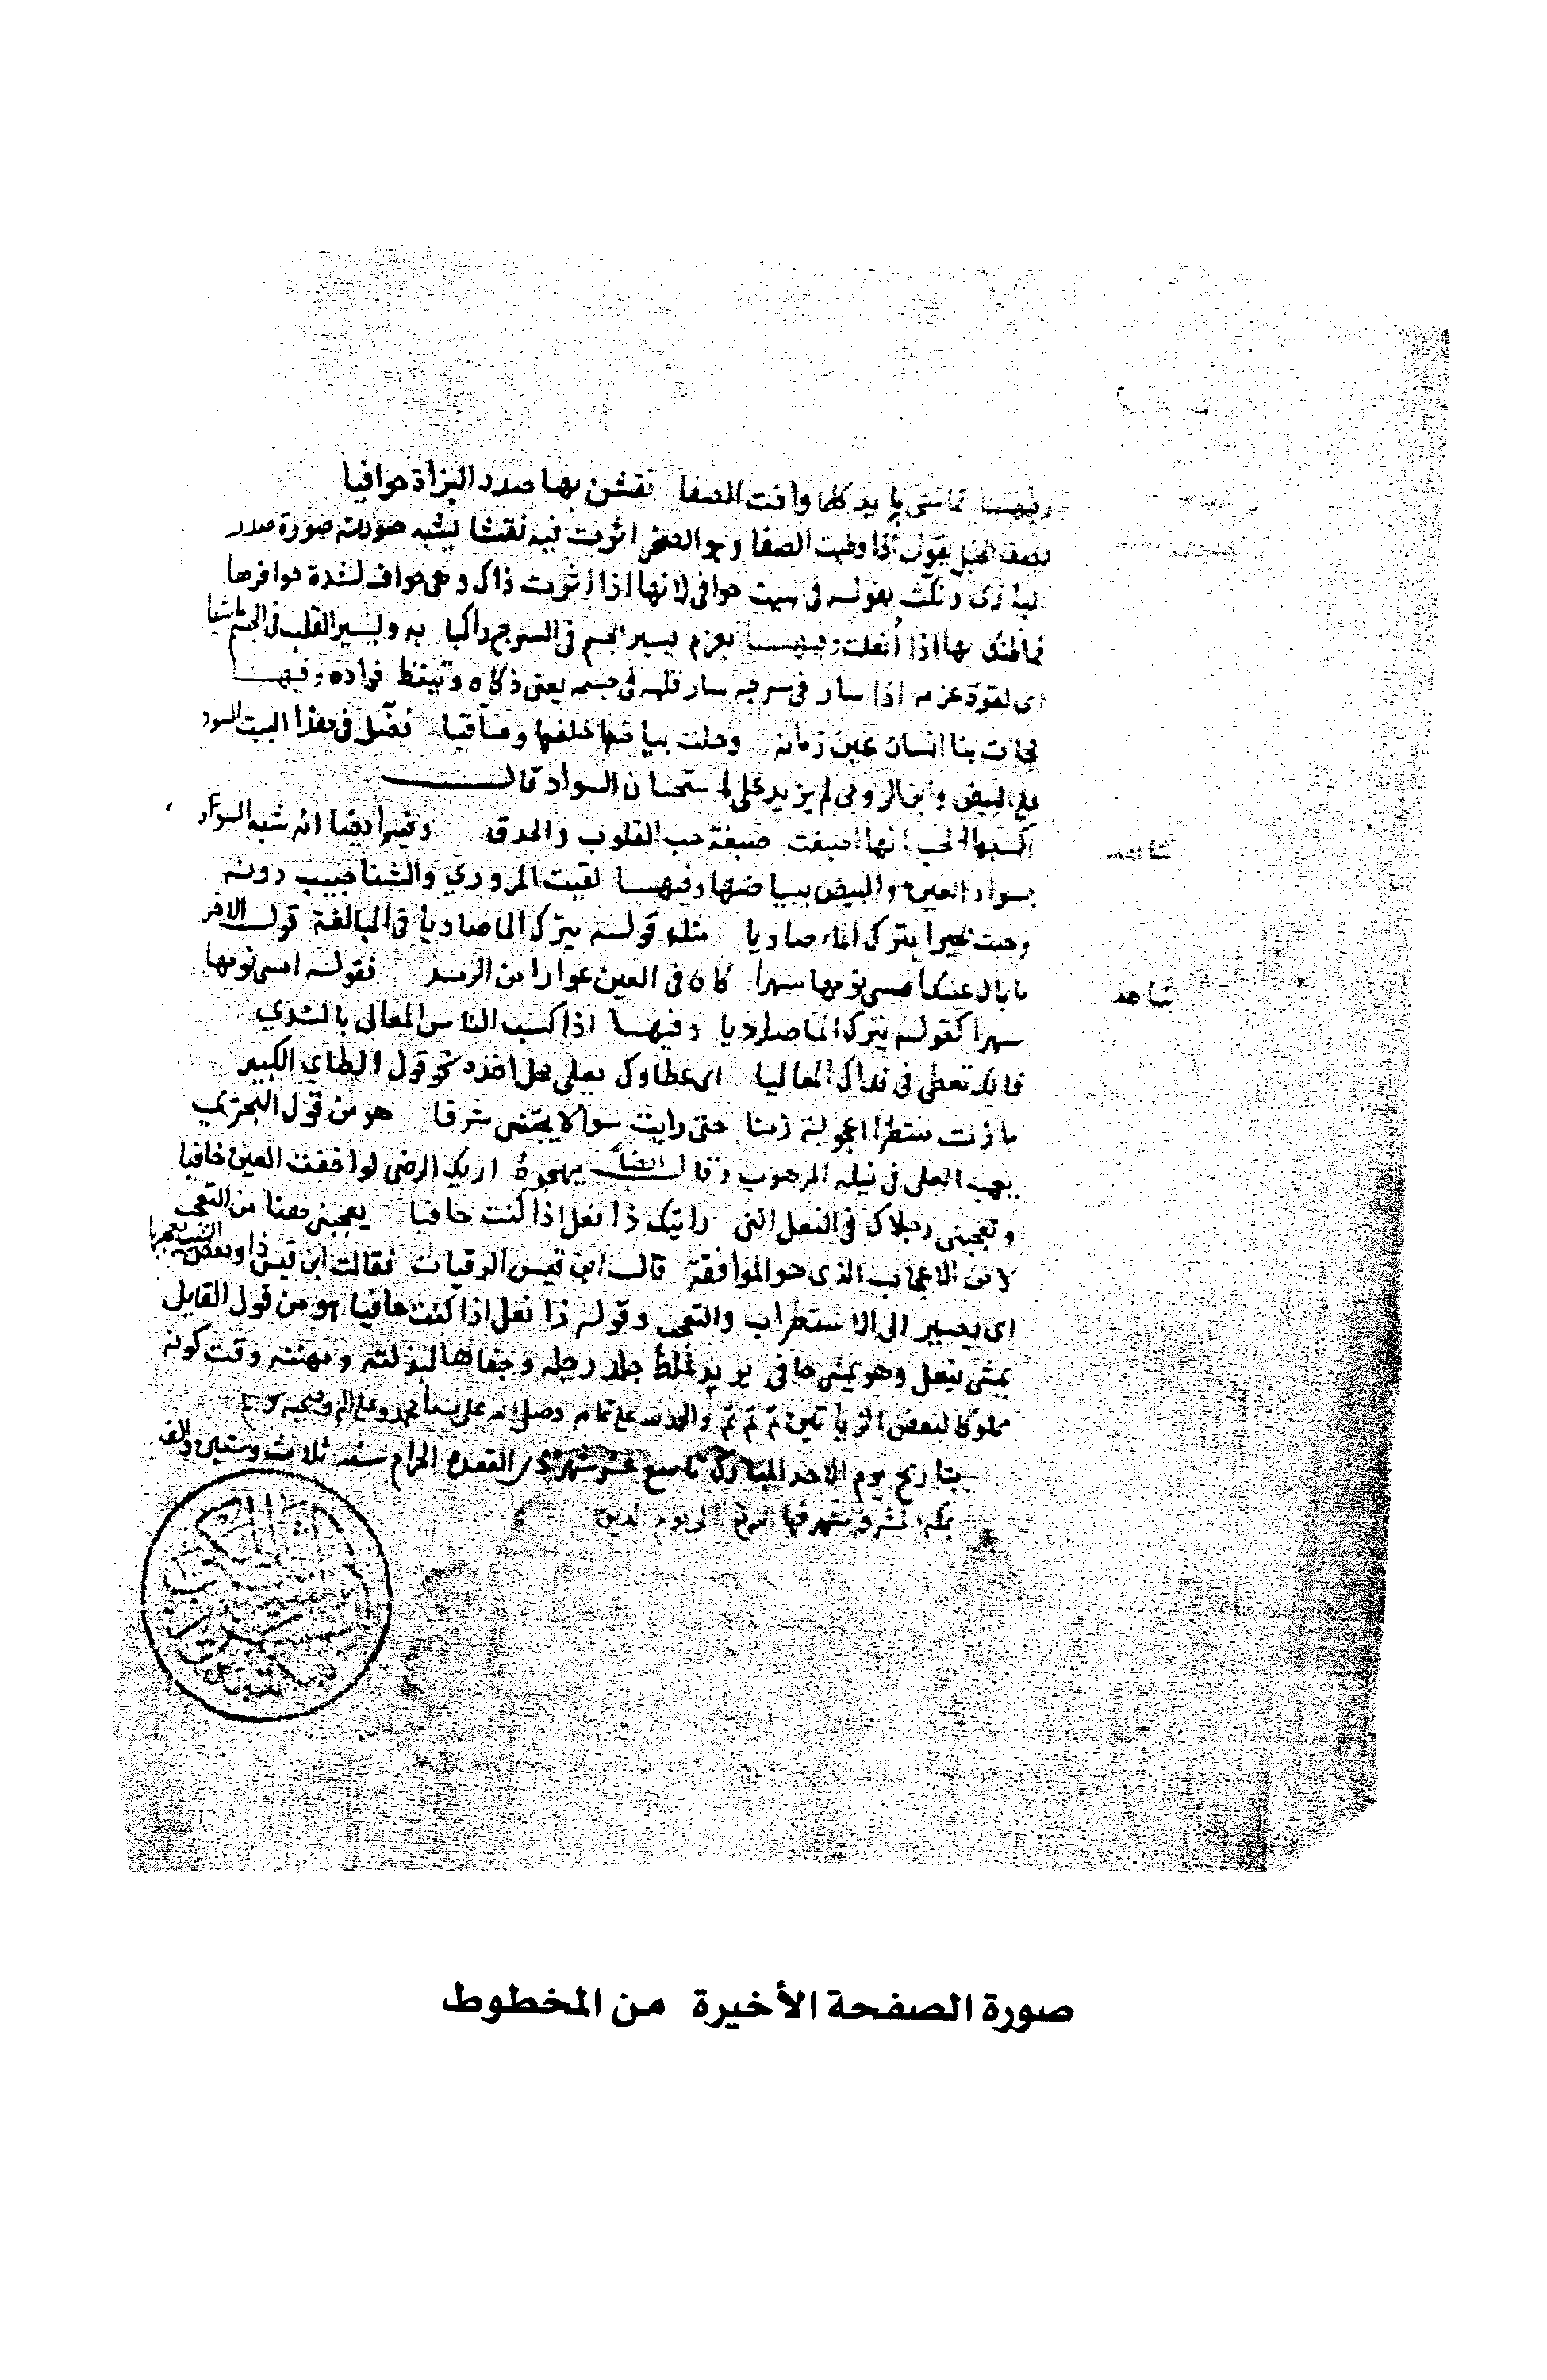 وفيها تماشى بأيد كلما وافت الصفا نقشن بها صدر البزاة حوافيا
يصف الخيل يقول اذا وطئت الصفا وهو الصخر اثرت فيه نقشا يشبه صورته صورة صدر
البازى ونكّت بقوله فى حوافى لانها اذا اثرت ذاك وهى حواف لشدة حوافرها
فما ظنك بها اذا أنعلت وفيها بعزم يسير الجسم فى السرج راكبا به ويسير القلب فى الجسم ماشيا
اى لقوة عزمه اذا سار فى سرجه سار قلبه فى جسمه يعنى ذكاه وتيقظ فواده وفيها
فجات بنا انسان عين زمانه وخلت بياضا خلفها ومآقيا فضّل فى هذا البيت السود
على البيض وابن الرومى لم يزيد على استحسان السواد قال
اكسبها الحب انها صبغت صبغة حب القلوب والحدق وفيه ايضا انه شبه السواد
بسواد العين والبيض ببياضها وفيها لقيت المروري والشناخيب دونه
وجبت هجيرا يترك الماء صاديا مثله قوله يترك الما صاديا فى المبالغة قول الاخر
ما بال عينك امسى نومها سهرا كان فى العين عوارا من الرمد فقوله امسى نومها
سهرا كقوله يترك الما صاديا وفيها اذا كسب الناس المعالى بالندي
فانك تعطى فى نداك المعاليا اى عطاوك يعلى من اخذه نحو قول الطاي الكبير
ما زلت منتظرا اعجوبة زمنا حتى رايت سوالا يجتنى شرفا هو من قول البحتري
يهب العلى فى نيله الموهوب وقال ايضا يهجوه اريك الرضى لو اخفت العين خافيا
وتعجبنى رجلاك فى النعل اننى رايتك ذا نعل اذا كنت حافيا يعجبنى هنا من التعجب
لا من الاعجاب الذى هو الموافقة قال ابن قيس الرقيات فقالت ابن قيس ذا وبعض الشيب يعجبها
اى يصير الى الاستغراب والتعجب وقوله ذا نعل اذا كنت حافيا هو من قول القايل
يمشى بنعل وهو يمشى حافى يريد غلظ جلد رجله وجفاها لبذلته ومهنته وقت كونه
مملوكا لبعض الزياتين تم تم تم والحمد لله على تمامه وصلى الله على سيدنا محمد وعلى اله وصحبه وسلم
بتاريخ يوم الاحد المبارك تاسع عشر شهر ذى القعدة الحرام سنة ثلاث وستين والف
شاهد
شاهد
صورة الصفحة الأخيرة من المخطوط